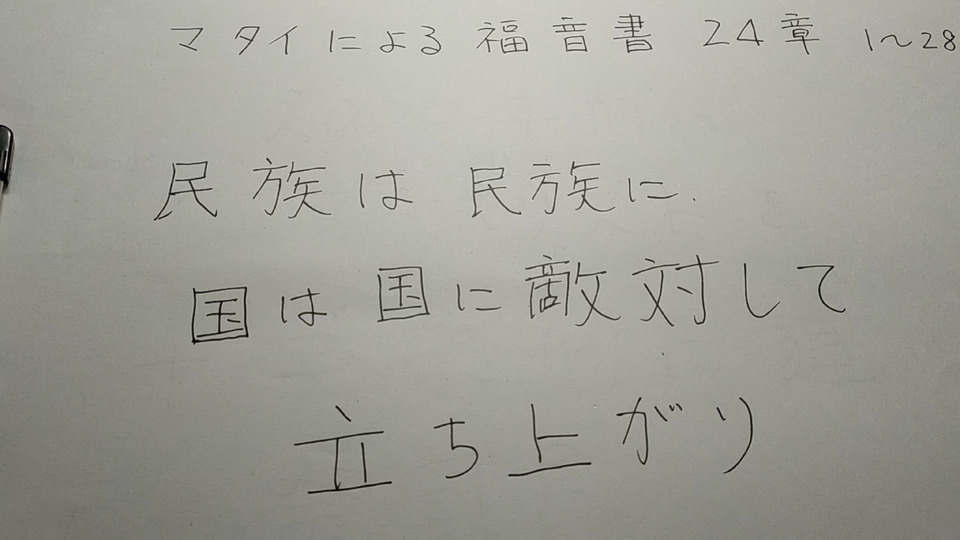 マタイによる福音書 24章 1~28
民族は民族に
国は国に敵対して
立ち上がり